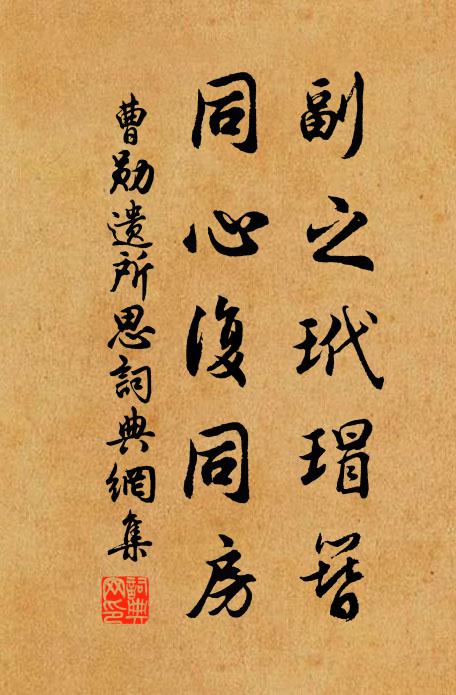 副之玳瑁簪
同心復同房
曹勛遺所思詞典網集
詞典網印